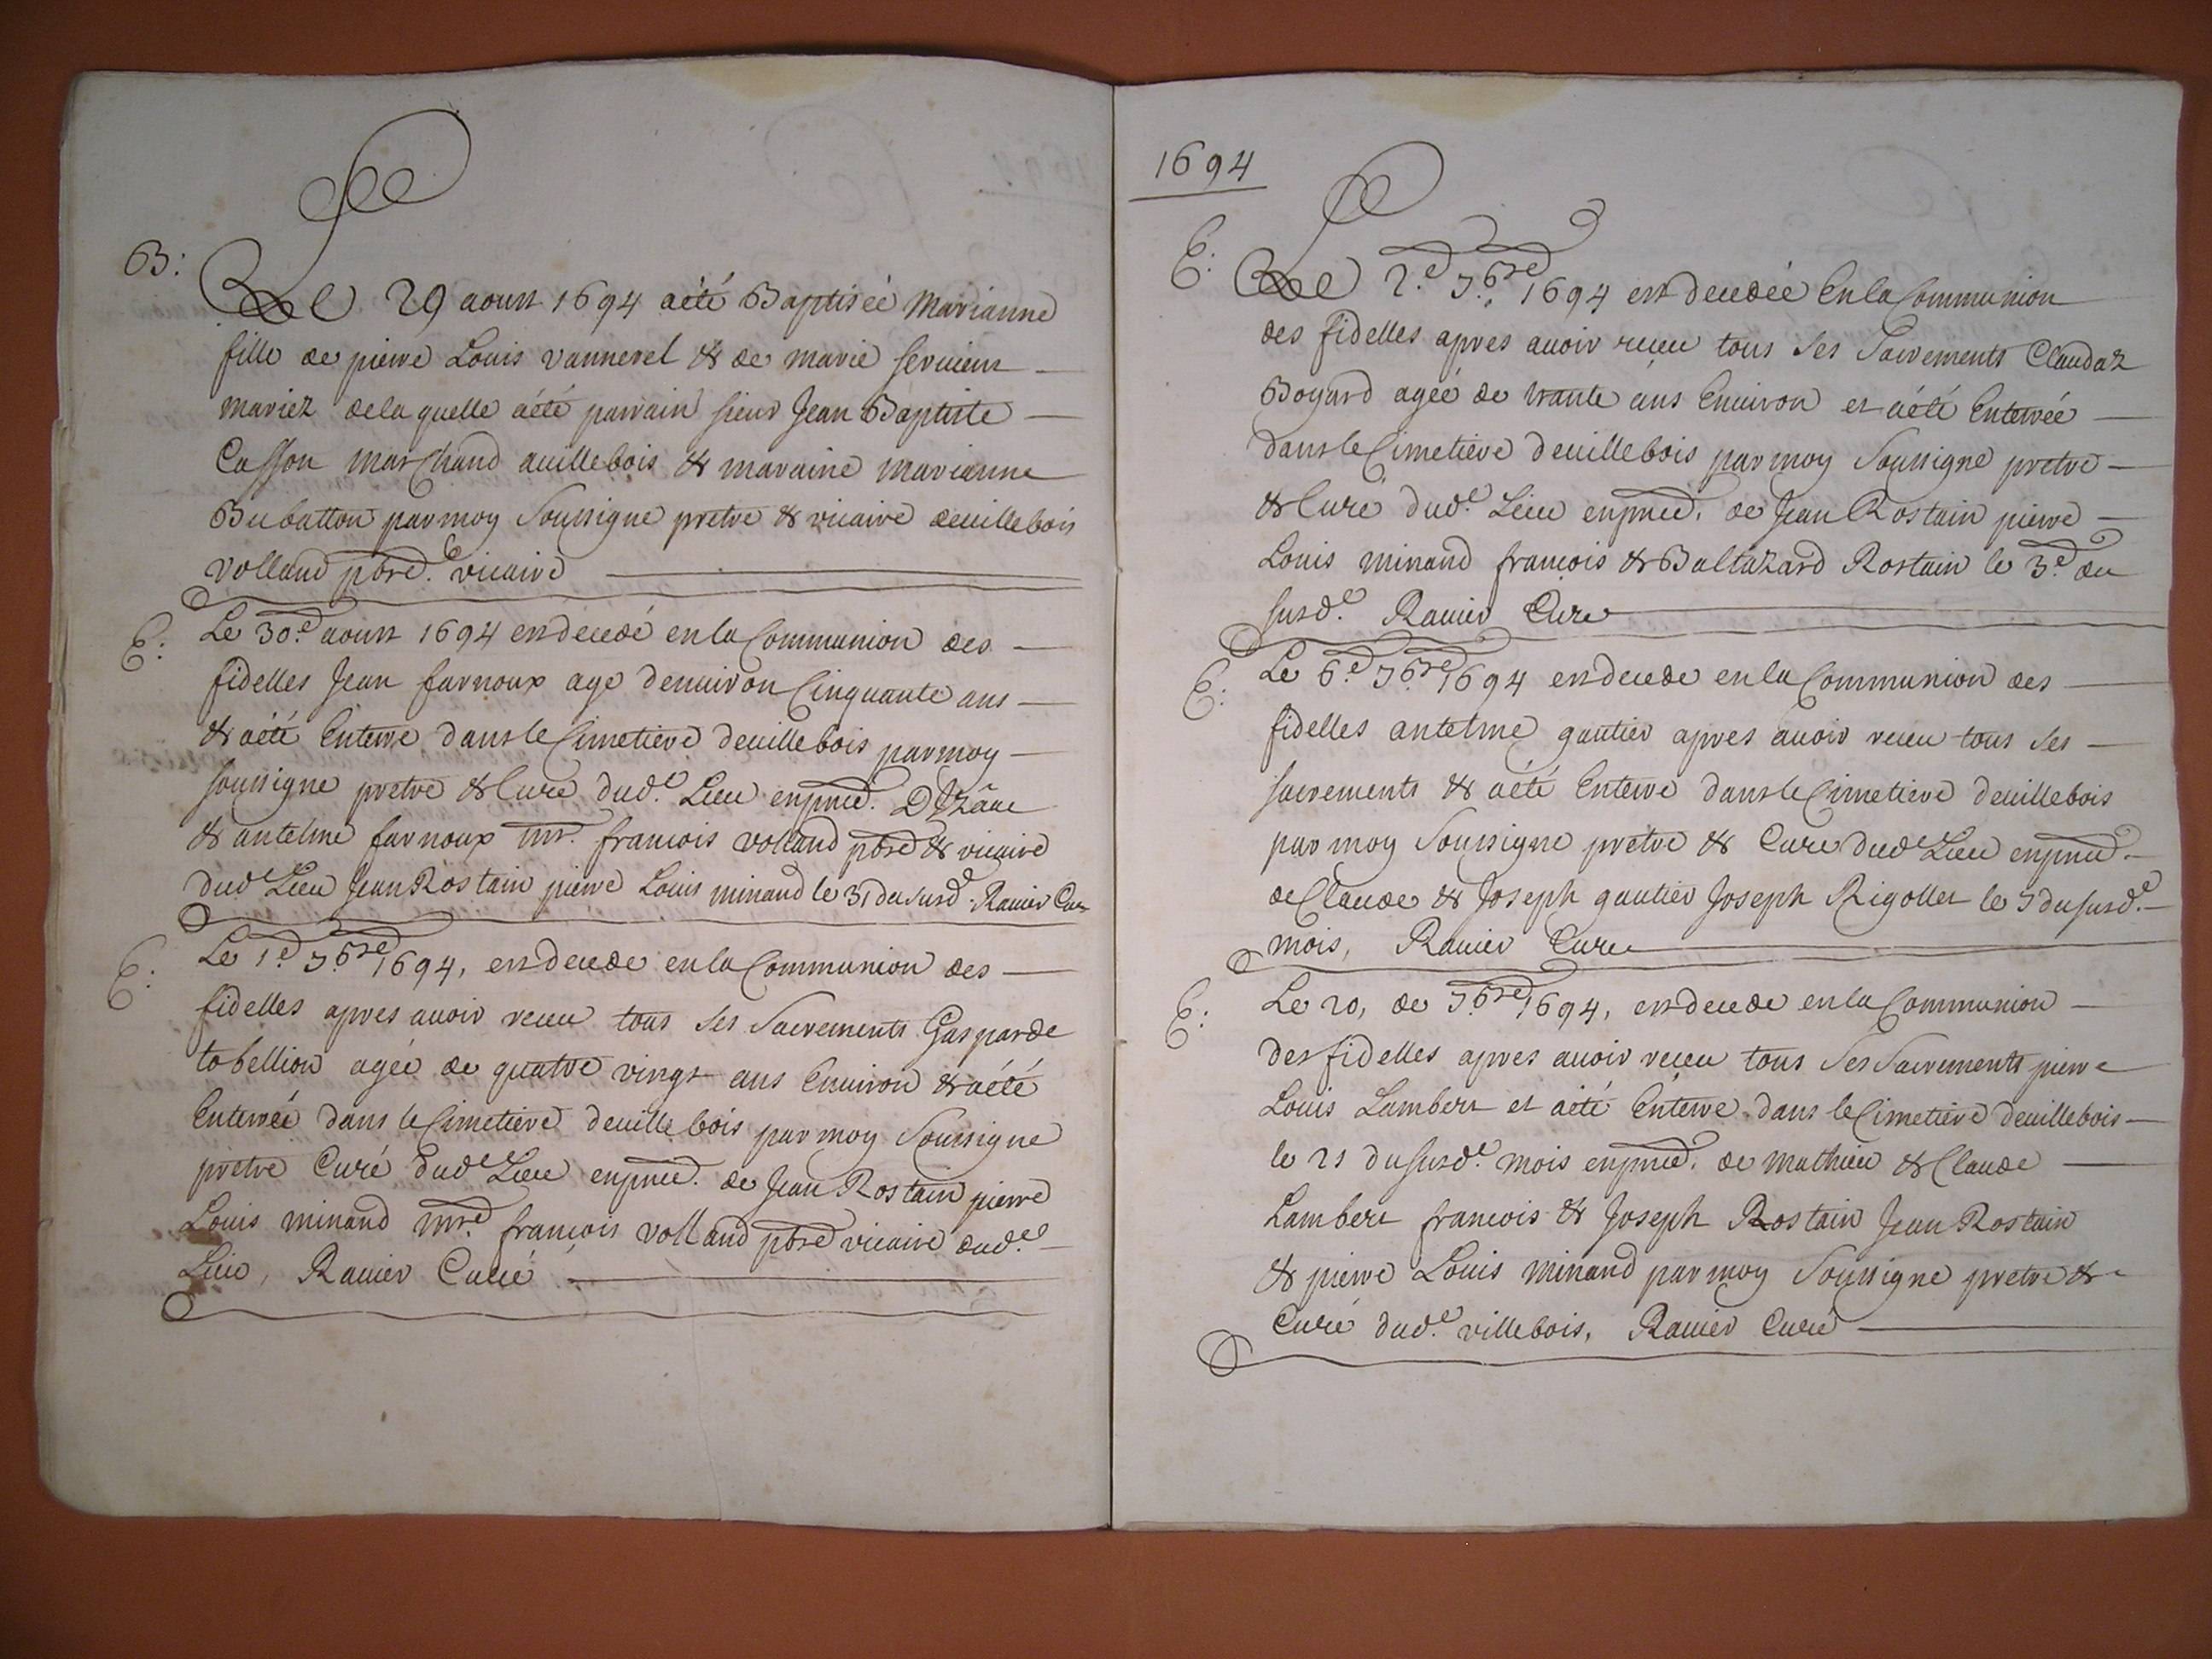 B:
Le 29 aoust 1694 aété Baptiséé Marianne
fille de pierre Louis vannerel & de marie seruient
mariez dela quelle aété parrain sieur Jean Baptiste
Casson marchand auillebois & maraine marianne
Bubatton parmoy Soussigne pretre & vicaire deuillebois
volland pbre. vicaire
E:
Le 30e. aoust 1694 est decedé en la Communion des
fidelles Jean farnoux age denuiron Cinquante ans
& aété Enterre dans le Cimetiere deuillebois parmoy
soussigne pretre & Curé dud.e Lieu enprnce.
& antelme farnoux mr. francois volland pbre & vicaire
dud.e Lieu Jean Rostain pierre Louis minand le 31 du susd. Rauier Cure
E:
Le 1e. 7bre. 1694, est decede en la Communion des
fidelles apres auoir receu tous ses Sacrements Gasparde
tobellion agée de quatre vingt ans Enuiron & aété
Enterréé dans le Cimetiere deuillebois par moy Soussigne
pretre Curé dud.e Lieu enprnce. de Jean Rostain pierre
Louis minand mre. francois volland pbre vicaire dud.e
Lieu, Rauier Curé
1694
E:
Le 2.e 7bre. 1694 est decedéé En la Communion
des fidelles apres auoir receu tous ses Sacrements Claudaz
Bogard agéé de trante ans Enuiron et aété Enterréé
dans le Cimetiere deuillebois par moy Soussigne pretre
& Curé dud.e Lieu enprnce. de Jean Rostain pierre
Louis minand francois & Baltazard Rostain le 3.e du
susd.e Rauier Cure
E:
Le 6.e 7bre. 1694 est decede en la Communion des
fidelles antelme gautier apres auoir receu tous ses
sacrements & aété Enterre dans le Cimetiere deuillebois
par moy Soussigne pretre & Cure dud.e Lieu enprnce.
de Claude & Joseph gautier Joseph Rigollet le 7 du susd.e
mois, Rauier Cure
E:
Le 20, de 7bre. 1694, est decede en la Communion
des fidelles apres auoir receu tous ses Sacrements pierre
Louis Lambert et aété Enterre dans le Cimetiere deuillebois
le 21 du susd.e mois enprnce. de mathieu & Claude
Lambert francois & Joseph Rostain Jean Rostain
& pierre Louis minand par moy Soussigne pretre &
Curé dud.e villebois, Rauier Curé